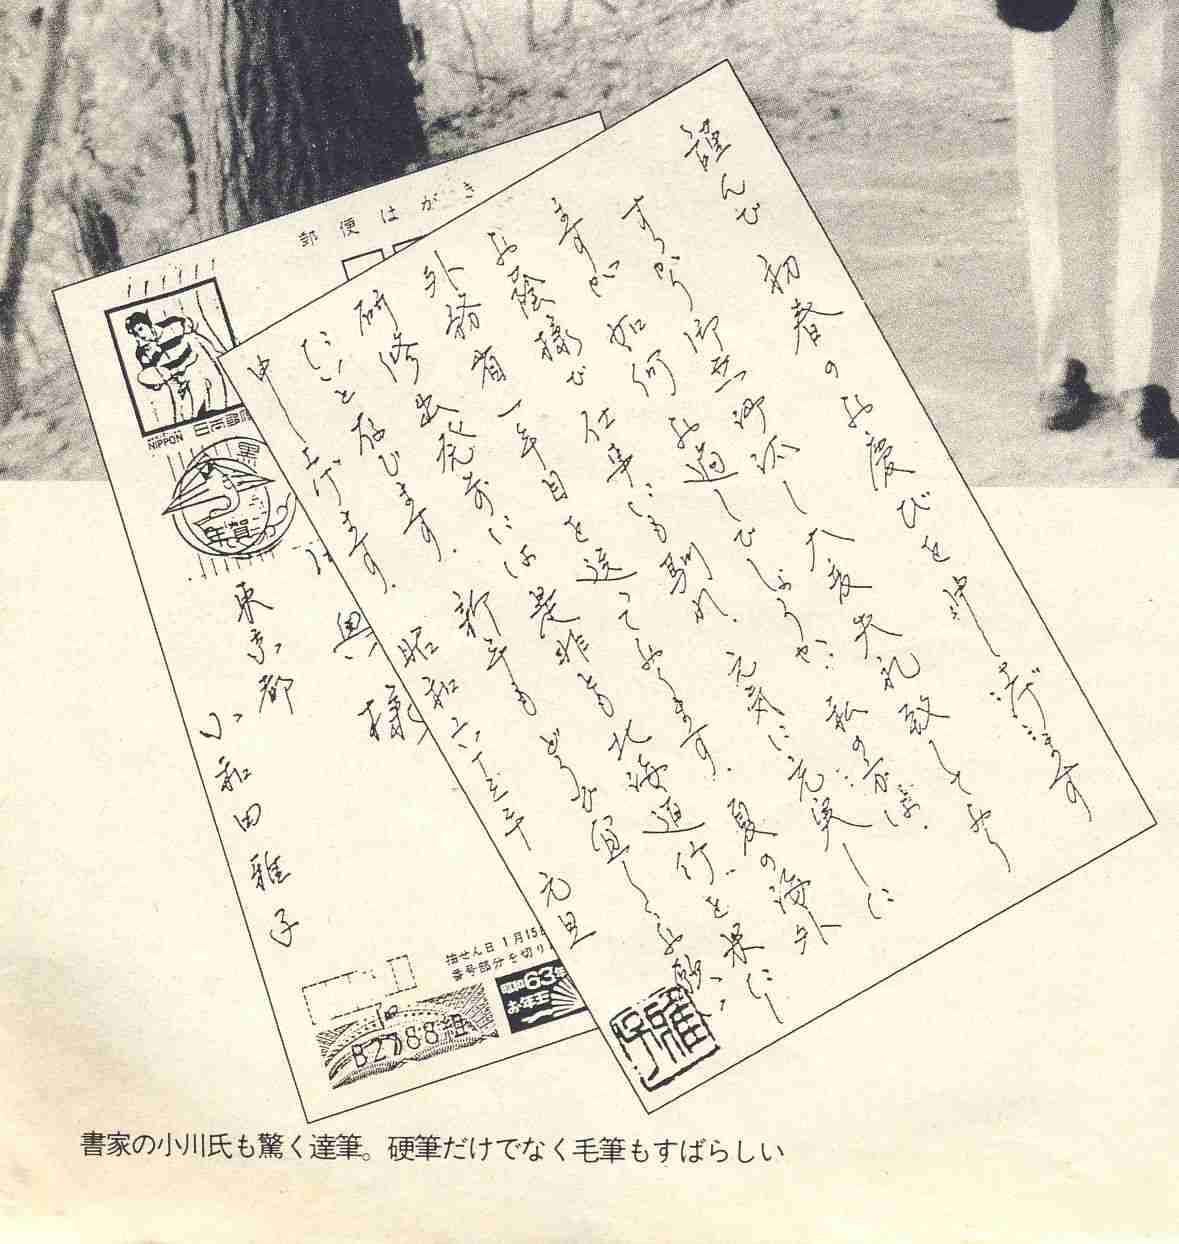 郵便はがき
謹んで初春のお慶びを申し上げます
すっかり御無沙汰し大変失礼致しており
ますが如何お過しでしょうか。私の方は、
お蔭様で仕事にも馴れ、元気に充実し
外務省一年目を送っております。夏の海外
研修出発前には是非とも北海道行を果し
たいと存じます。新年もどうぞ宜しくお願い
申し上げます。
昭和六十三年 元旦
雅子
NIPPON
日本郵便
年賀
興 様
東京都
小和田雅子
抽せん日 1月15
番号部分を切り
昭和63年
お年玉
B2788組
書家の小川氏も驚く達筆。硬筆だけでなく毛筆もすばらしい